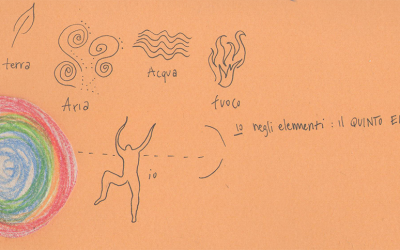 terra
Aria
Acqua
fuoco
io
IO negli elementi : il QUINTO E